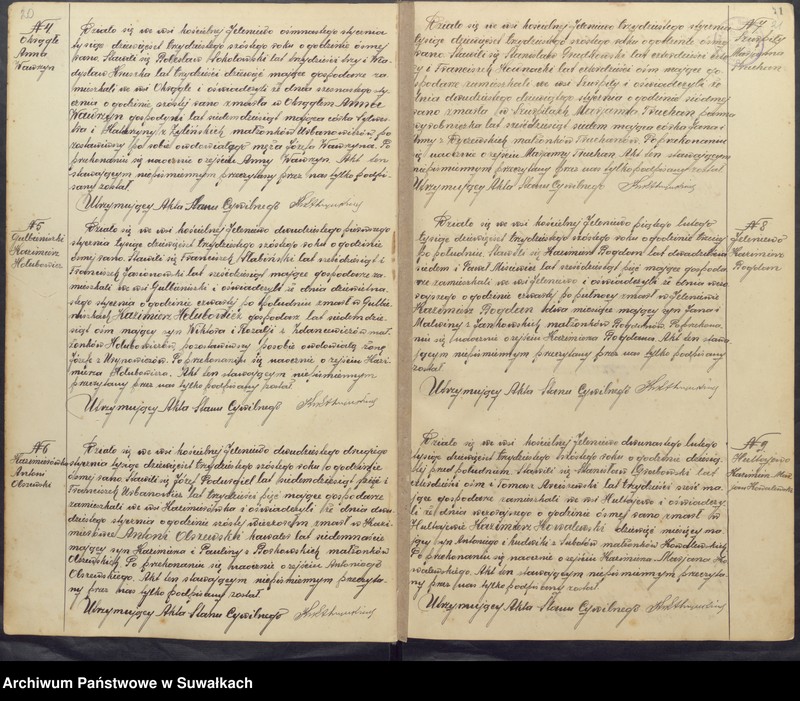 20
№ 4
Okrągłe
Anna
Wawrzyn
Działo się we wsi kościelnej Jeleniewo ósmnastego stycznia
tysiąc dziewięćset trzydziestego szóstego roku o godzinie ósmej
rano. Stawili się Bolesław Sokołowski lat trzydzieści trzy i Wła-
dysław lat trzydzieści dziewięć mające gospodarze za-
mieszkali we wsi Okrągłe i oświadczyli że dnia szesnastego sty-
cznia o godzinie szóstej rano zmarła w Okrągłem Anna
Wawrzyn gospodyni lat siedemdziesiąt mająca córka
i Katarzyny z małżonków Urbanowiczów po-
zostawiwszy po sobie owdowiałego męża Józefa Wawrzyna. Po
przekonaniu się naocznie o zejściu Anny Wawrzyn Akt ten
stawającym niepiśmiennym przeczytany przez nas tylko podpi-
sany został
Utrzymujący Akta Stanu Cywilnego
№ 5
Kazimierz
Hołubowicz
Działo się we wsi kościelnej Jeleniewo dwudziestego pierwszego
stycznia tysiąc dziewięćset trzydziestego szóstego roku o godzinie
ósmej rano. Stawili się Franciszek lat sześćdziesiąt i
Franciszek lat sześćdziesiąt mające gospodarze za-
mieszkali we wsi i oświadczyli że dnia dziewiętna-
stego stycznia o godzinie czwartej po południu zmarł w
Kazimierz Hołubowicz gospodarz lat siedemdzie-
siąt ośm mający syn Wiktora i Rozalji z małżonków
Hołubowiczów pozostawiwszy po sobie owdowiałą żonę
Józefę z Po przekonaniu się naocznie o zejściu Kazi-
mierza Hołubowicza. Akt ten stawającym niepiśmiennym
przeczytany przez nas tylko podpisany został
Utrzymujący Akta Stanu Cywilnego
№ 6
Kazimierówka
Antoni
Olszewski
Działo się we wsi kościelnej Jeleniewo dwudziestego drugiego
stycznia tysiąc dziewięćset trzydziestego szóstego roku o godzinie
ósmej rano. Stawili się Józef lat siedemdziesiąt i
Franciszek Urbanowicz lat trzydzieści pięć mające gospodarze
zamieszkali we wsi Kazimierówka i oświadczyli że dnia dwu-
dziestego stycznia o godzinie szóstej wieczorem zmarł w Kazi-
mierówce Antoni Olszewski kawaler lat siedemnaście
mający syn Kazimierza i Pauliny z małżonków
Olszewskich. Po przekonaniu się naocznie o zejściu Antoniego
Olszewskiego. Akt ten stawającym niepiśmiennym przeczyta-
ny przez nas tylko podpisany został
Utrzymujący Akta Stanu Cywilnego
21
№ 7
Szurpiły
Marjanna
Działo się we wsi kościelnej Jeleniewo trzydziestego stycznia
tysiąc dziewięćset trzydziestego szóstego roku o godzinie ósmej
rano Stawili się Stanisław lat czterdzieści
i Franciszek Nowacki lat czterdzieści ośm mające go-
spodarze zamieszkali we wsi Szurpiły i oświadczyli że
dnia dwudziestego dziewiątego stycznia o godzinie siódmej
rano zmarła w Szurpiłach Marjanna panna
wyrobnica lat sześćdziesiąt siedem mająca córka Jana i
Anny z małżonków Po przekonaniu
się naocznie o zejściu Marjanny Akt ten stawającym
niepiśmiennym przeczytany przez nas tylko podpisany został
Utrzymujący Akta Stanu Cywilnego
№ 8
Jeleniewo
Kazimierz
Bogdan
Działo się we wsi kościelnej Jeleniewo piątego lutego
tysiąc dziewięćset trzydziestego szóstego roku o godzinie trzeciej
po południu. Stawili się Kazimierz Bogdan lat dwadzieścia
siedem i Paweł lat sześćdziesiąt pięć mające gospoda-
rze zamieszkali we wsi Jeleniewo i oświadczyli że dnia wczo-
rajszego o godzinie czwartej po północy zmarł w Jeleniewie
Kazimierz Bogdan dwa miesiące mający syn Jana i
Malwiny z Jankowskich małżonków Bogdanów Po przekona-
niu się naocznie o zejściu Kazimierza Bogdana Akt ten stawa-
jącym niepiśmiennym przeczytany przez nas tylko podpisany
został
Utrzymujący Akta Stanu Cywilnego
№ 9
Hultajewo
Kazimierz Mar-
jan Kowalewski
Działo się we wsi kościelnej Jeleniewo dwunastego lutego
tysiąc dziewięćset trzydziestego szóstego roku o godzinie dziesią-
tej przed południem. Stawili się Stanisław Grabowski lat
czterdzieści ośm i Tomasz lat trzydzieści sześć ma-
jące gospodarze zamieszkali we wsi Hultajewo i oświadczy-
li że dnia wczorajszego o godzinie ósmej rano zmarł w
Hultajewie Kazimierz Kowalewski dziewięć miesięcy ma-
jący syn Antoniego i Ludwiki z małżonków Kowalewskich
Po przekonaniu się naocznie o zejściu Kazimierza Marjana Ko-
walewskiego. Akt ten stawającym niepiśmiennym przeczyta-
ny przez nas tylko podpisany został.
Utrzymujący Akta Stanu Cywilnego
Archiwum Państwowe w Suwałkach